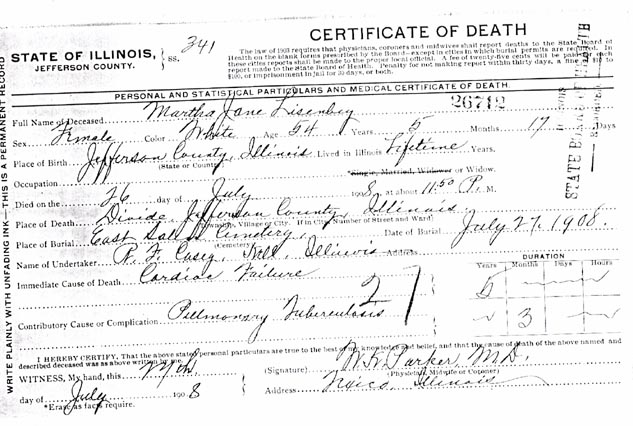 CERTIFICATE OF DEATH
STATE OF ILLINOIS, JEFFERSON COUNTY. } SS. 341
The law of 1903 requires that physicians, coroners and midwives shall report deaths to the State Board of
Health on the blank forms prescribed by the Board—except in cities in which burial permits are required. In
these cities reports shall be made to the proper local official. A fee of twenty-five cents will be paid for each
report made to the State Board of Health. Penalty for not making report within thirty days, a fine of $10 to
$100, or imprisonment in jail for 30 days, or both.
PERSONAL AND STATISTICAL PARTICULARS AND MEDICAL CERTIFICATE OF DEATH.
26712
Full Name of Deceased Martha Jane Lisenbey
Sex Female Color White Age 54 Years 5 Months 17 Days
Place of Birth Jefferson County, Illinois Lived in Illinois Lifetime Years.
(State or County)
Occupation Single, Married, Widower or Widow.
Died on the 26 day of July 1908, at about 11.50 P. M.
Place of Death Divide, Jefferson County, Illinois
(Township, Village or City. If in City, Number of Street and Ward)
Place of Burial East Salem Cemetery, Date of Burial July 27, 1908.
(Cemetery)
Name of Undertaker R. F. Casey, Kell, Illinois
DURATION
Years Months Days Hours
Immediate Cause of Death Cardiac Failure 5
2
Contributory Cause or Complication Pulmonary Tuberculosis 3
I HEREBY CERTIFY, That the above stated personal particulars are true to the best of my knowledge and belief, and that the cause of death of the above named and
described deceased was as above written by me.
WITNESS, My hand, this
(Signature) W. K. Parker, M.D.
(Physician, Midwife or Coroner)
day of July 1908
Address Illinois
*Erase as facts require.
WRITE PLAINLY WITH UNFADING INK—THIS IS A PERMANENT RECORD
STATE BOARD OF HEALTH